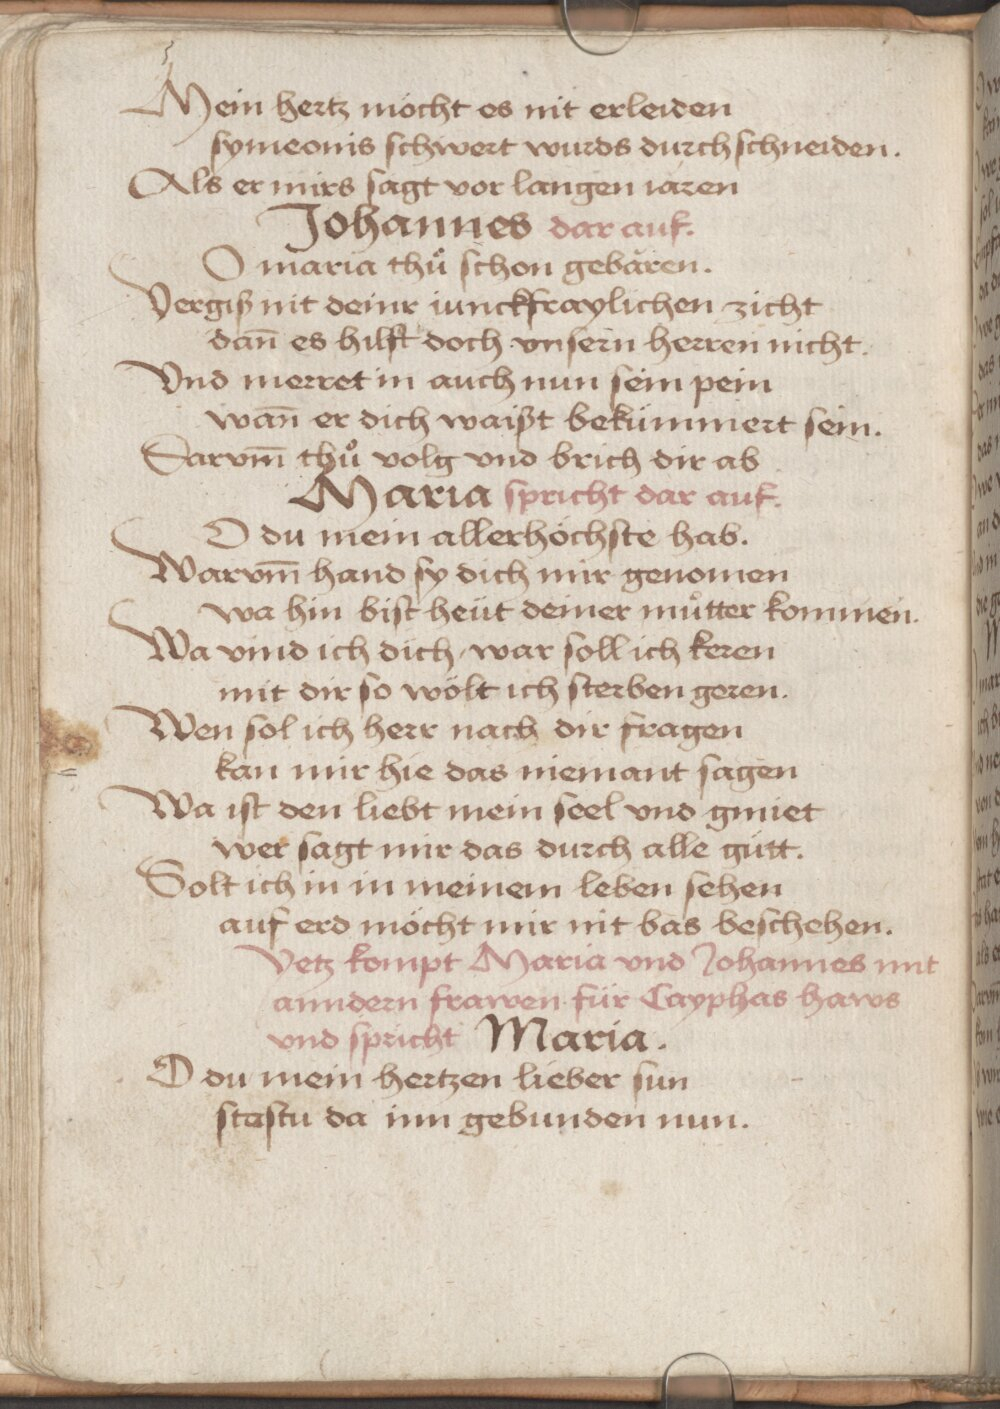 Mein hertz möcht es nit erleiden
symeonis schwert wurds durchschneiden.
Als er mirs sagt vor langen iaren
Johannes dar auf.
O maria thuͦ schon gebären.
Vergiß nit deinr iunckfraylichen zicht
dan̄ es hilft doch vnsern herren nicht.
Vnd merret in auch nun sein pein
wan̄ er dich waißt bekümmert sein.
Darvm̄ thuͦ volg vnd brich dir ab
Maria spricht dar auf.
O du mein allerhöchste hab.
Warvm̄ hand sy dich mir genomen
wa hin bist heüt deiner muͦtter kommen.
Wa vind ich dich, war soll ich keren
mit dir so wölt ich sterben geren.
Wen sol ich herr nach dir fragen
kan mir hie das niemant sagen
Wa ist den liebt mein seel vnd gmiet
wer sagt mir das durch alle gütt.
Solt ich in in meinem leben sehen
auf erd möcht mir nit bas beschehen.
Yetz kompt Maria vnd Johannes mit
anndern frawen für Cayphas haws
vnd spricht Maria.
O du mein hertzen lieber sun
stastu da inn gebunden nun.